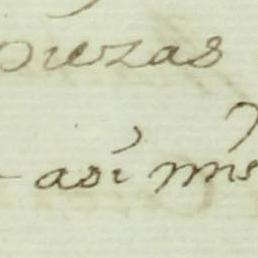 piezas
así mis